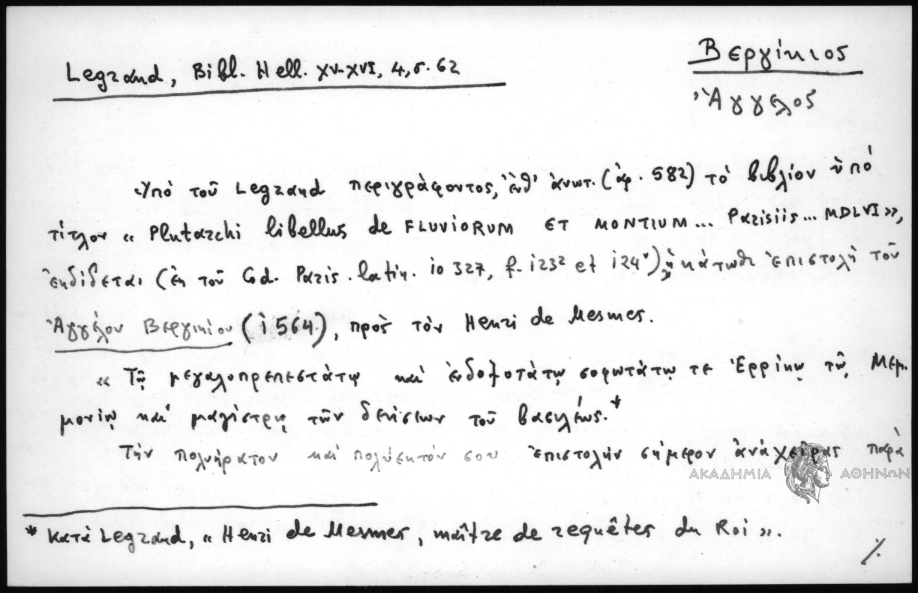 Legrand, Bibl. Hell. XV-XVI, 4, σ. 62
Βεργίκιος
Ἄγγελος
Ὑπὸ τοῦ Legrand περιγράφοντος, ἔνθ' ἀνωτ. (ἀρ. 582) τὸ βιβλίον ὑπό
τίτλον « Plutarchi libellus de FLUVIORUM ET MONTIUM... Parisiis... MDLVI»,
ἐκδίδεται (ἐκ τοῦ Cod. Paris. latin. 10327, f. 123² et 124ᵛ), ἡ κάτωθι ἐπιστολή τοῦ
Ἀγγέλου Βεργικίου (1564), πρὸς τὸν Henri de Mesmes.
« Τῷ μεγαλοπρεπεστάτῳ καὶ ἐνδοξοτάτῳ σοφωτάτῳ τε Ἐρρίκῳ τῷ Μεμ-
μονίῳ καὶ μαγίστρῳ τῶν δεήσεων τοῦ βασιλέως.*
Τὴν πολυήρατον καὶ πολύευκτόν σου ἐπιστολὴν σήμερον ἀνὰ χεῖρας παρὰ
ΑΚΑΔΗΜΙΑ ΑΘΗΝΩΝ
* Κατὰ Legrand, « Henri de Mesmes, maître de requêtes du Roi ».
./.